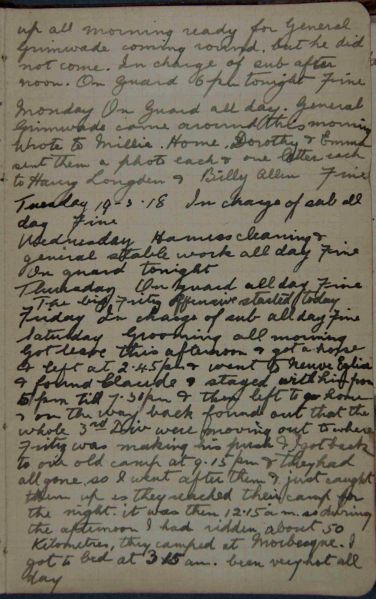 up all morning ready for General
Grimwade coming round. but he did
not come. In charge of sub after
noon. On Guard 6pm tonight Fine
Monday On Guard all day. General
Grimwade came around this morning
Wrote to Millie. Home, Dorothy & Emma
sent them a photo each & one letter each
to Harry Longden & Billy Allen Fine
Tuesday 19-3-18 In charge of sub all
day Fine
Wednesday Harness cleaning &
general stable work all day Fine
On guard tonight
Thursday On Guard all day Fine
The big Fritz Offensive started today
Friday In charge of sub all day Fine
Saturday Grooming all morning
Got leave this afternoon & got a horse
& left at 2.45pm & went to Neuve Eglise
& found Claude & stayed with him from
5pm till 7-30pm & then left to go home
& on the way back found out that the
whole 3rd Div were moving out to where
Fritz was making his push & I got back
to our old camp at 9.15pm & they had
all gone, so I went after them & just caught
them up as they reached their camp for
the night. it was then 12.15 a.m. so during
the afternoon I had ridden about 50
Kilometres, they camped at Morbecque. I
got to bed at 3.15 am. been very hot all
day